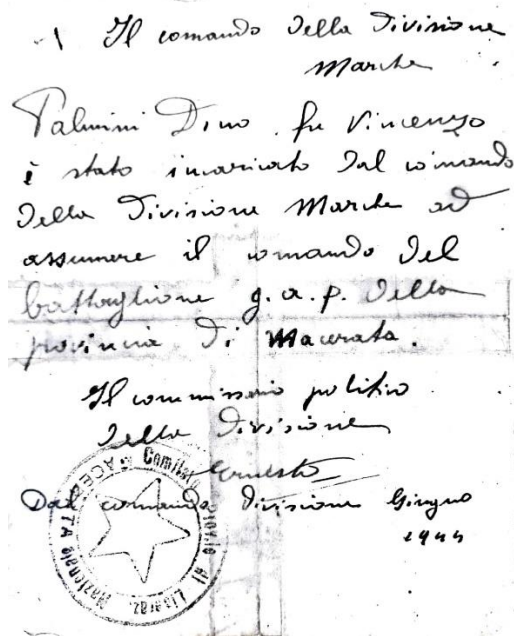 Il comando della Divisione
Marche
Palmini Dino fu Vincenzo
è stato incaricato dal comando
della Divisione Marche ad
assumere il comando del
battaglione g.a.p. della
provincia di Macerata.
Il commissario politico
della Divisione
Ernesto
Dal comando Divisione Giugno
1944
Comitato Provle di Liberaz. Nazionale MACERATA